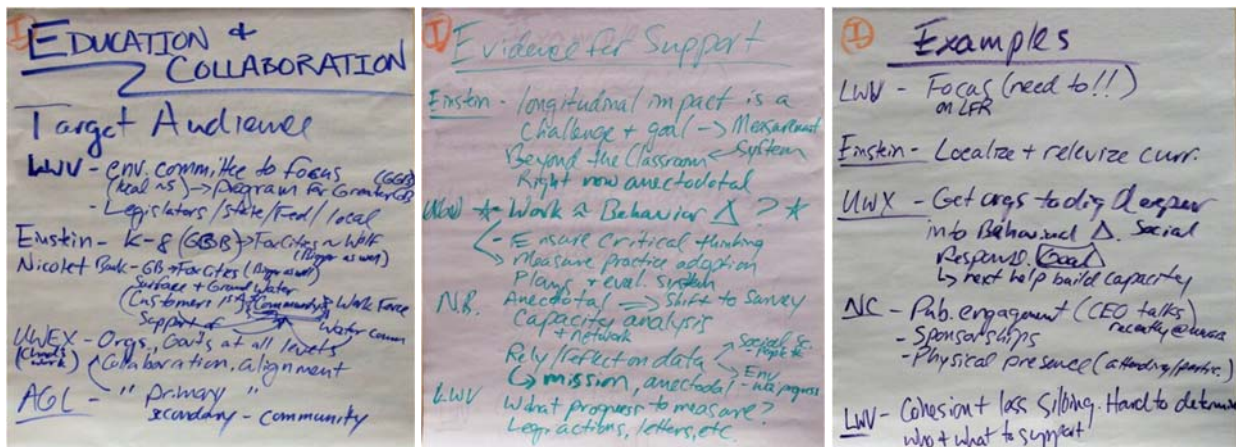 I
EDUCATION +
COLLABORATION
Target Audience
LWV - env. committee to focus
(local ~s) → program for Greater GB (GGB)
- Legislators/state/Fed/local
Einstein - K-8 (GBB) → Fox Cities ~ Wolf
(Bigger as well)
Nicolet Bank - GB → Fox Cities (Bigger as well)
Surface + Ground Water
(Customers Community Work Force
Support of Water comm
UWEX - Orgs, Gov'ts at all levels
work) Collaboration, alignment
AGL - " primary "
secondary - community
I
Evidence for Support
Einstein - longitudinal impact is a
challenge + goal → Measurement
Beyond the Classroom ← System
Right now anectodotal
* - Work ~ Behavior Δ ? *
- Ensure critical thinking
- Measure practice adoption
Plans, + eval. system
N.R. Anecdotal ⇒ Shift to Survey
Capacity analysis
+ network
Rely/reflection data Social Sc.
- people
Env
↳ mission, anectodal - progress
LWV What progress to measure?
Leg. actions, letters, etc.
I
Examples
LWV - Focus (need to!!)
on LFR
Einstein - Localize + relevize curr.
UWX - Get orgs to dig deeper
into Behavioral Δ. Social
Respons. Goal
↳ next help build capacity
NC - Pub. engagement (CEO talks)
recently @
- Sponsorships
- Physical presence (attending/partic.)
LWV - Cohesion + less siloing. Hard to determine
who + what to support